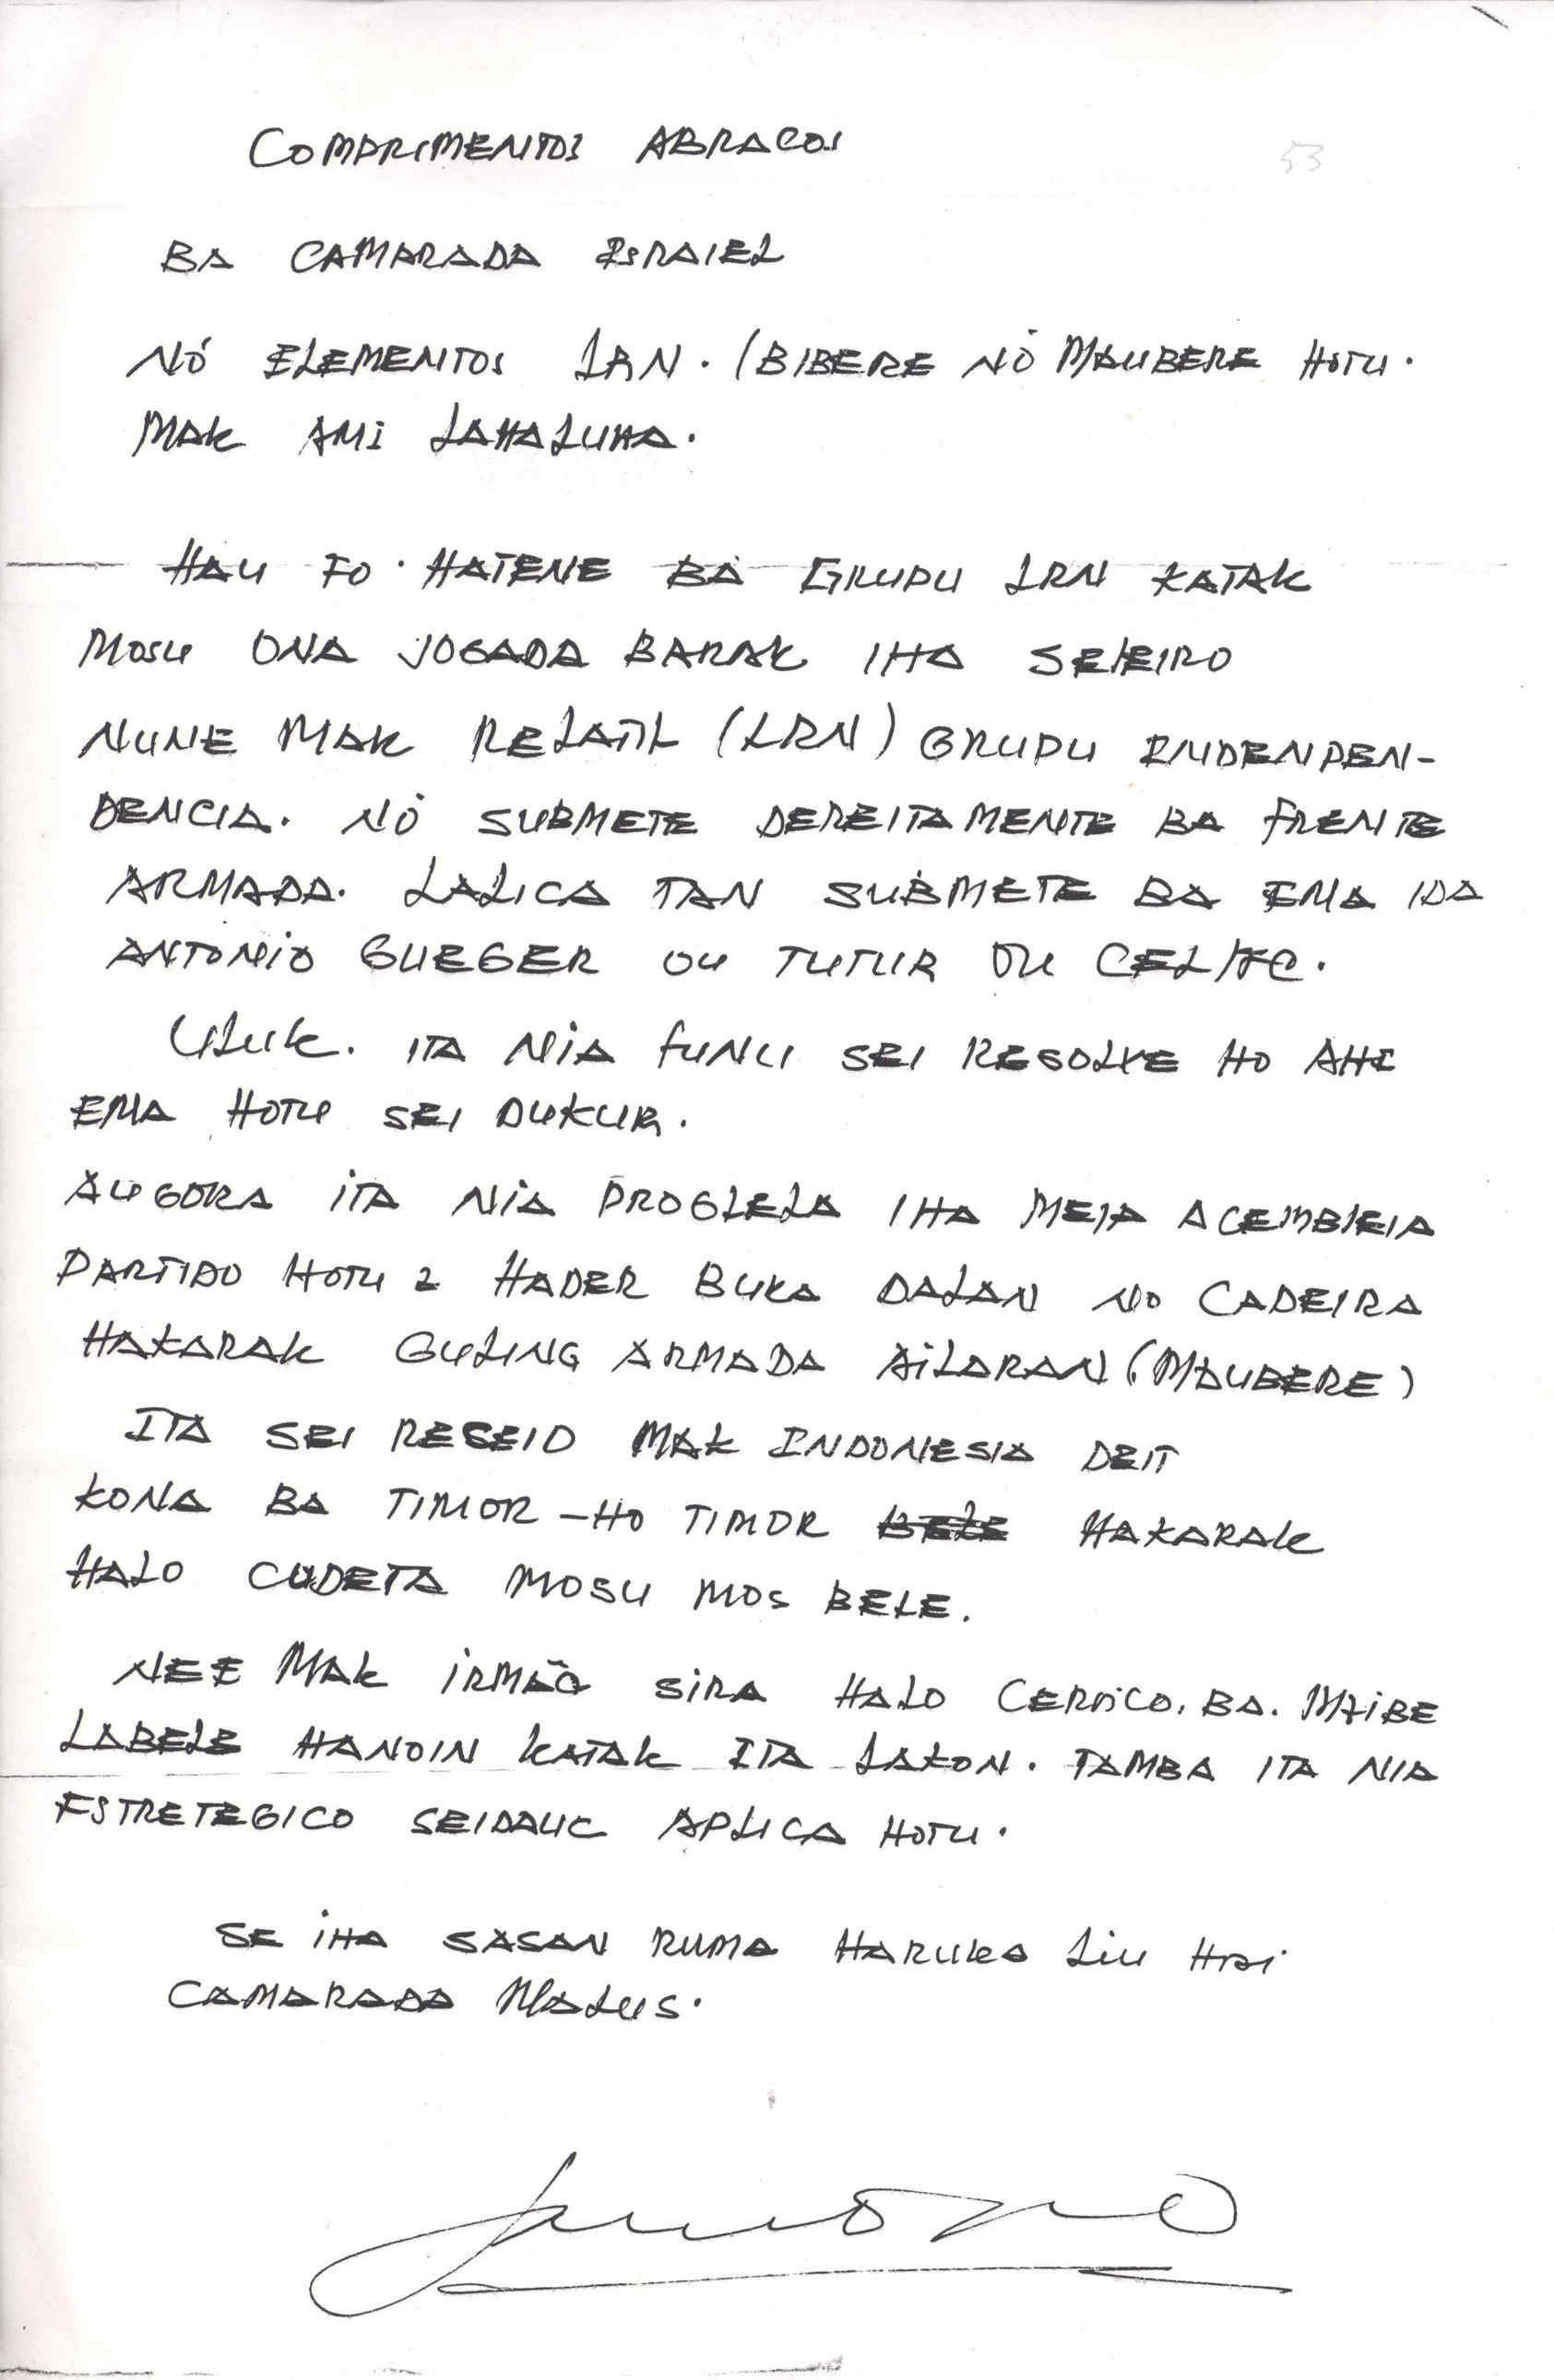 COMPRIMENTOS ABRACOS
53
BA CAMARADA ISRAIEL
NÓ ELEMENTOS LRN. (BIBERE NÓ MAUBERE HOTU.
MAK AMI LAHALUHA.
HAU FO HATENE BA GRUPU LRN KATAK
MOSU ONA JOGADA BARAK IHA
NUNE MAK RELATIL (LRN) GRUPU INDENPEN-
DENCIA. NÓ SUBMETE DEREITAMENTE BA FRENTE
ARMADA. LALICA TAN SUBMETE BA EMA IDA
ANTONIO GUEGER OU TUTUR OU
ULUK. ITA NIA FUNU SEI RESOLVE HO AHI
EMA HOTU SEI DUKUR.
AUGORA ITA NIA PROGLELA IHA MEIA ACEMBLEIA
PARTIDO HOTU 2 HADER BUKA DALAN NO CADEIRA
HAKARAK GULING ARMADA AILARAN (MAUBERE)
ITA SEI RESEIO MAK INDONESIA DEIT
KONA BA TIMOR - HO TIMOR BELE HAKARAK
HALO CUDETA MOSU MOS BELE.
NEE MAK IRMÃO SIRA HALO CERVICO. BA. MAIBE
LABELE HANOIN KATAK ITA LAKON. TAMBA ITA NIA
ESTRETEGICO SEIDAUC APLICA HOTU.
SE IHA SASAN RUMA HARUKA LIU HOSI
CAMARADA MALUS.